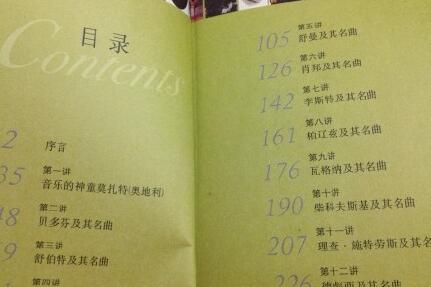 目录
Contents
2
序言
35
第一讲
音乐的神童莫扎特(奥地利)
48
第二讲
贝多芬及其名曲
9
第三讲
舒伯特及其名曲
第四讲
105
第五讲
舒曼及其名曲
126
第六讲
肖邦及其名曲
142
第七讲
李斯特及其名曲
161
第八讲
柏辽兹及其名曲
176
第九讲
瓦格纳及其名曲
190
第十讲
柴科夫斯基及其名曲
207
第十一讲
理查·施特劳斯及其名曲
226
第十二讲
德彪西及其名曲